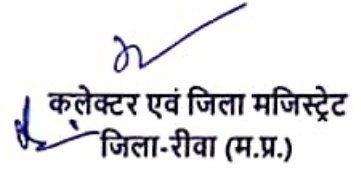 कलेक्टर एवं जिला मजिस्ट्रेट
जिला-रीवा (म.प्र.)